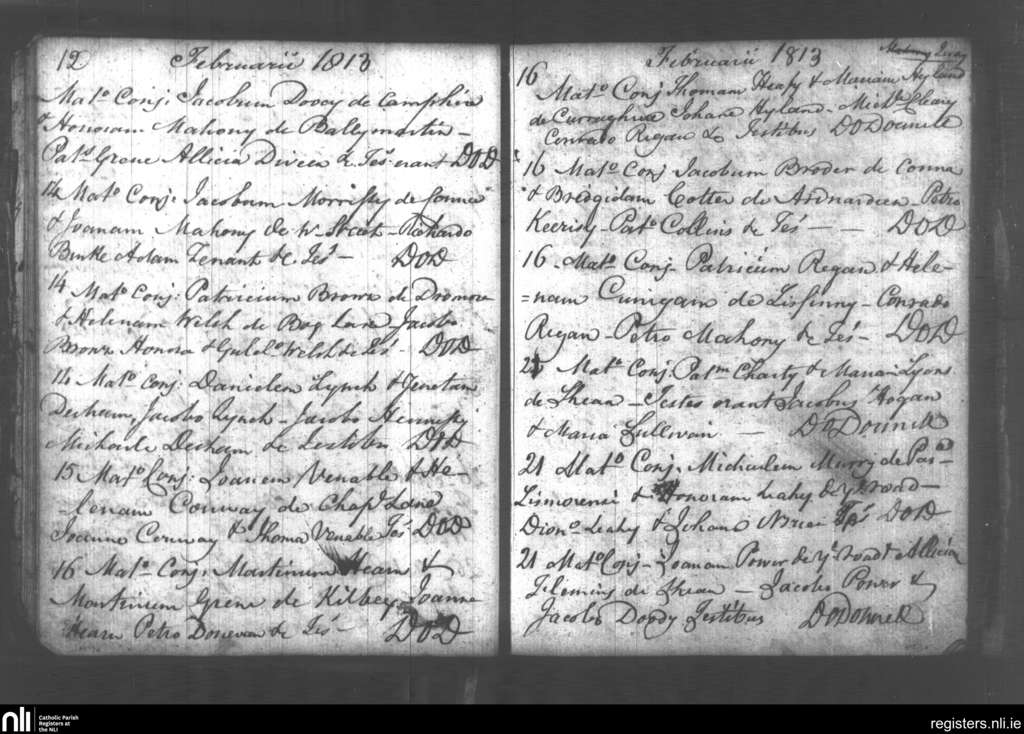 12 Februarii 1813
Mat.o Conj: Jacobum Dovoy de Camphire
& Honoram Mahony de Ballymartin -
Pat.k Grane Allicia Diveen & Tes.s erant DOD
14 Mat.o Conj: Jacobum Morrissy de
& Joanam Mahony de W. Street - Richardo
Burke Adam Tenant &c. Tes.s - DOD
14 Mat.o Conj: Patricium Browne de Dromore
& Helenam Welsh de Bog Lane Jacobo
Browne Honora & Gulel.o Welsh de Tes.s - DOD
14 Mat.o Conj: Danielem Lynch & Jenetam
Jacobo Lynch - Jacobo Hennessy
Michaele de Testibus DOD
15 Mat.o Conj: Joanem Venable & He-
lenam Conway de Chap.l Lane
Joanne Conway & Thoma Venable Tes.s DOD
16 Mat.o Conj: Martinum Hearn &
Martinum Grene de Kilbeg Joanne
Hearn Petro Donevan de Tes.s - DOD
Februarii 1813
16 Mat.o Conj Thomam Heafy & Mariam Hyland
de Curraghrua Johane Hyland - Mich.l Cleary
Conrado Regan & Testibus DODonnell
16 Mat.o Conj Jacobum Broder de Conna
& Bridgidam Cotter de - Petro
Pat.o Collins de Tes.s - - DOD
16 Mat.o Conj. Patricium Regan & Hele-
=nam Cunigam de Lisfinny - Conrado
Regan - Petro Mahony de Tes.s - DOD
21 Mat.o Conj: Pat.m Charty & Mariam Lyons
de Shean - Testes erant Jacobus Hogan
& Maria Sullivan - DODonnell
21 Mat.o Conj. Michaelem Murry de Par.
Lismorensi & Honoram Leahy de y.e Road -
Dion.o Leahy & Johana Brien Tes.s DOD
21 Mat.o Conj - Joanam Power de y.e Road & Allicia
Fleming de Shean - Jacobo Power &
Jacobo Dowdy Testibus DODonnell
nli Catholic Parish
Registers at
the NLI
registers.nli.ie